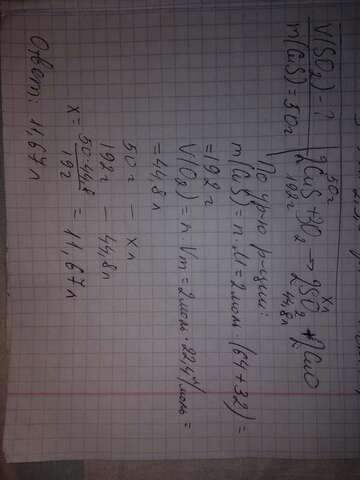 V(SO₂) - ?
m(CuS) = 50г
50г xл
2CuS + 3O₂ → 2SO₂ + 2CuO
192г 44,8л
По ур-ю р-ции:
m(CuS) = n · M = 2моль · (64 + 32) =
= 192 г
V(O₂) = n · Vm = 2моль · 22,4 л/моль =
= 44,8 л
50 г — xл
192 г — 44,8 л
x = 50 · 44,8 / 192 = 11,67 л
Ответ: 11,67 л